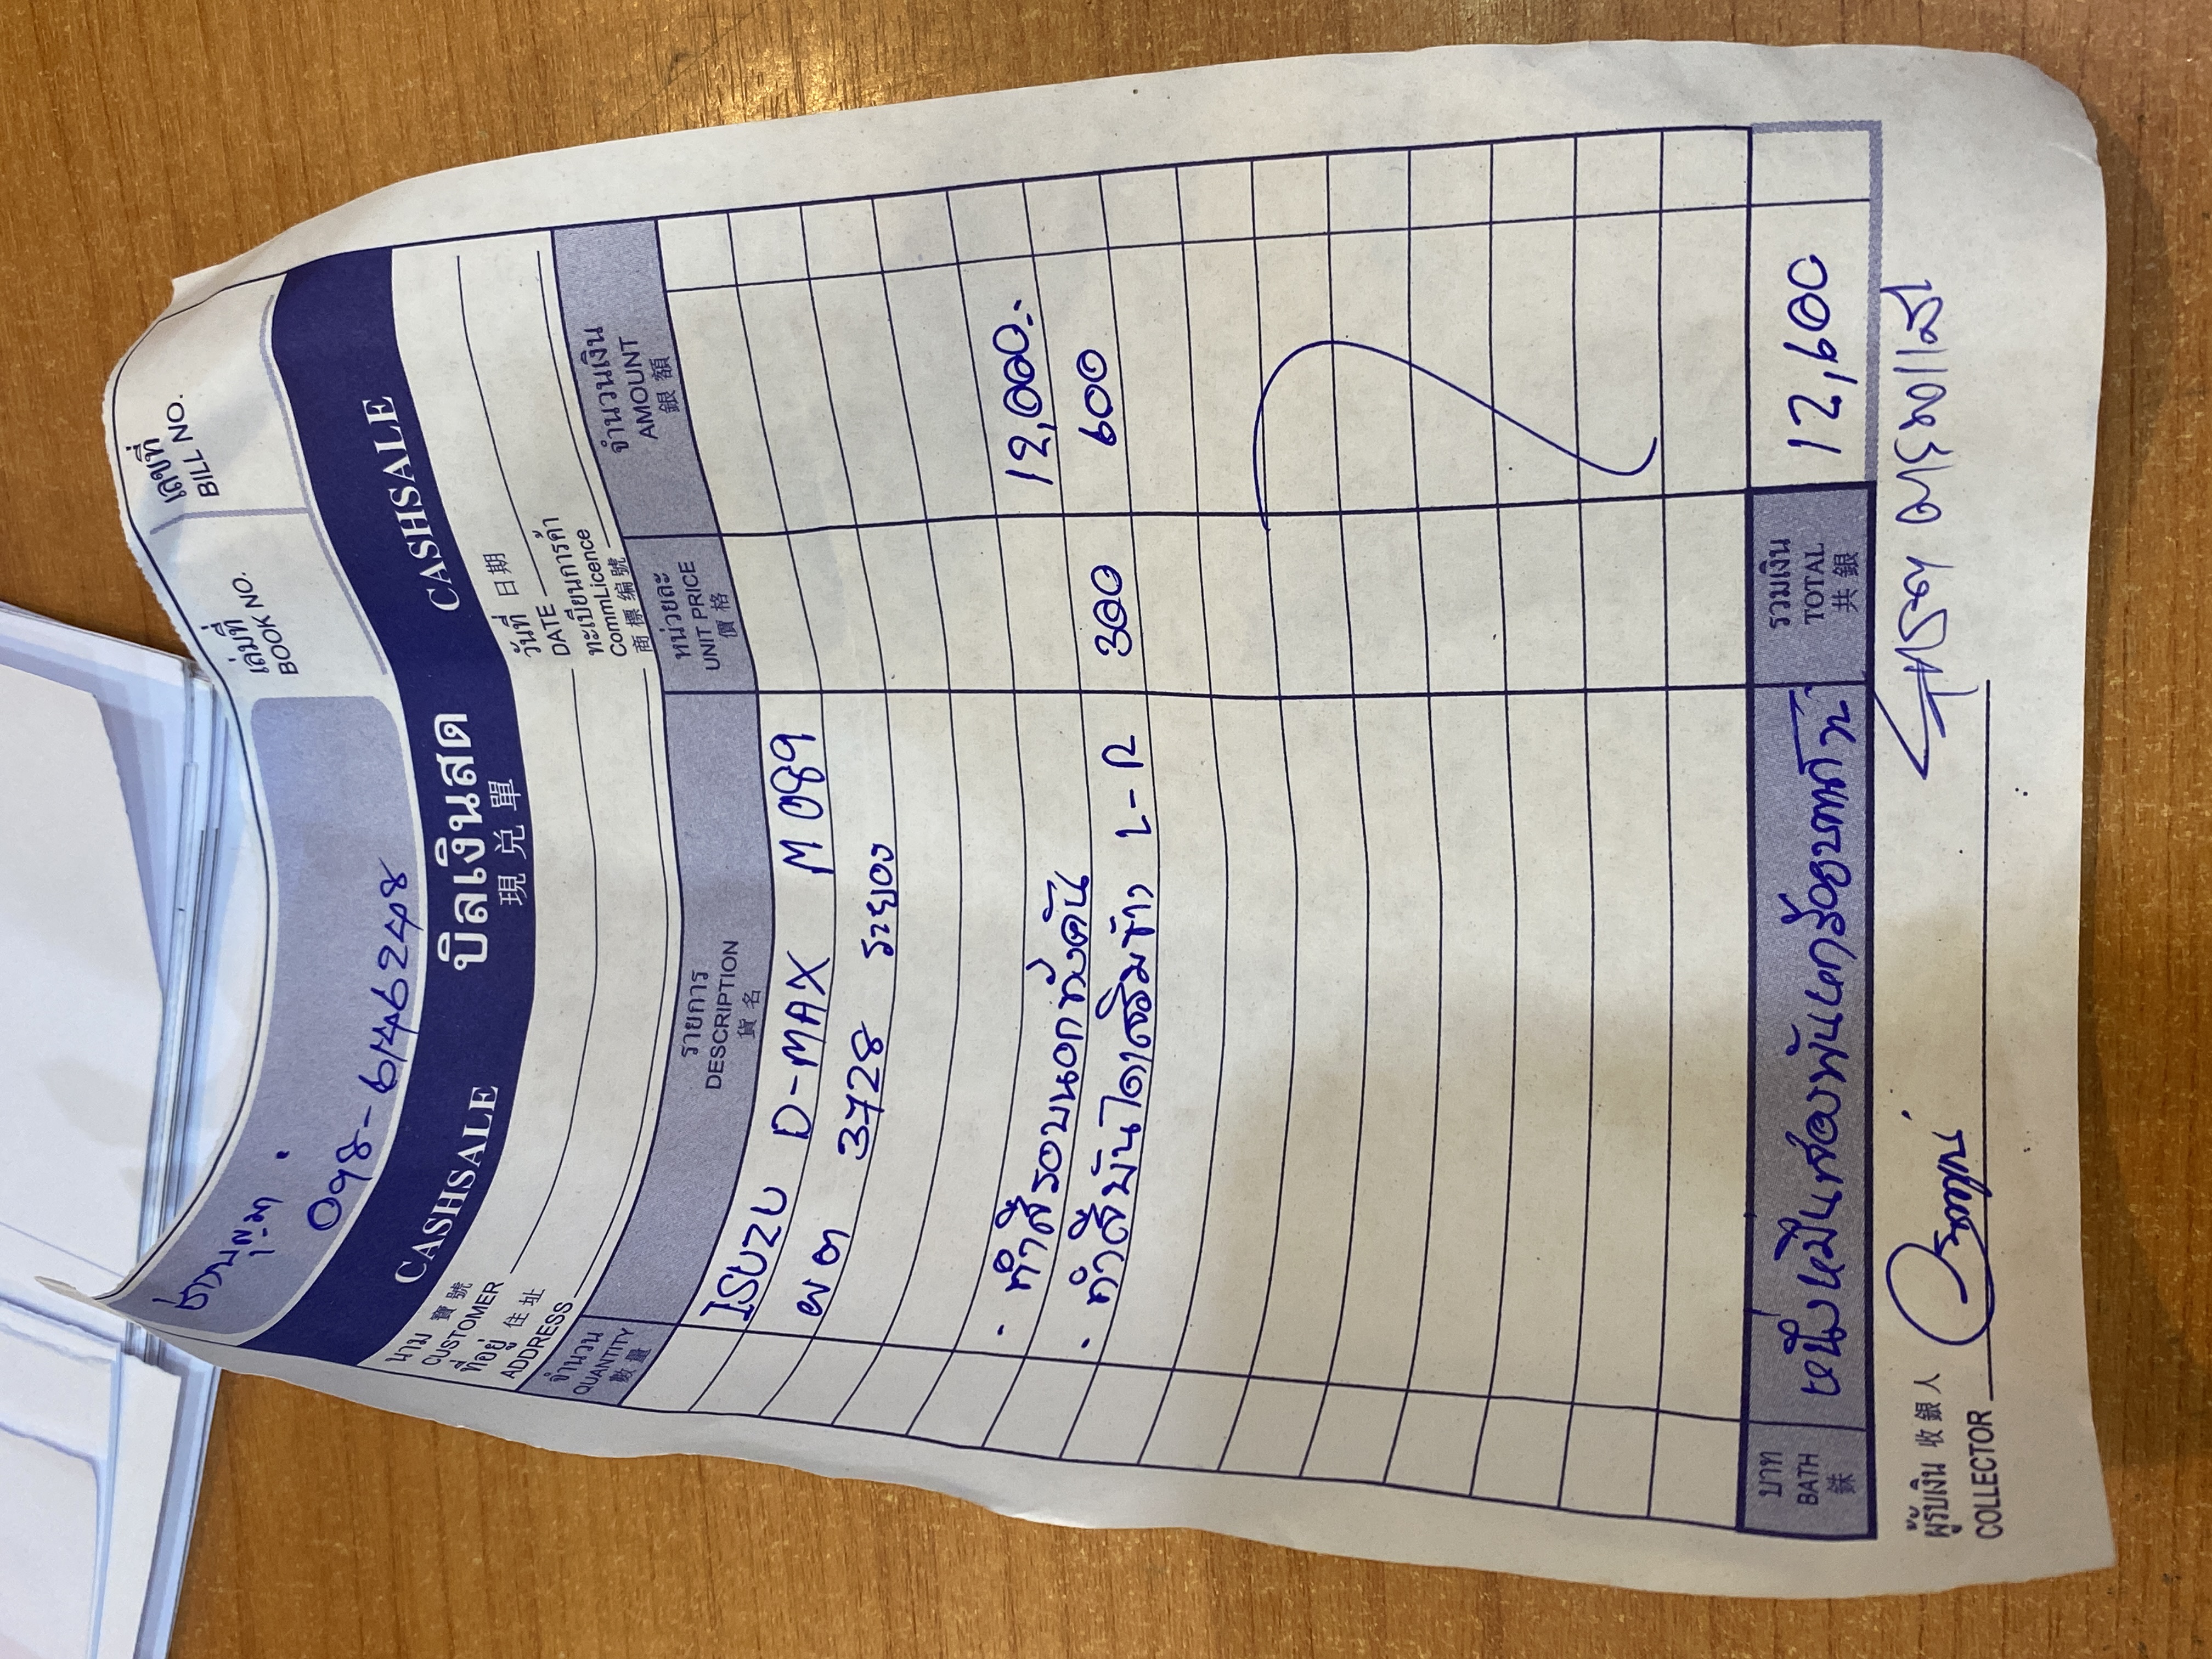 098-6446248
เล่มที่
BOOK NO.
เลขที่
BILL NO.
CASHSALE บิลเงินสด CASHSALE
現兌單
นาม 寶號
CUSTOMER
ที่อยู่ 住址
ADDRESS
วันที่ 日期
DATE
ทะเบียนการค้า
CommLicence
商標编號
จำนวน
QUANTITY
數量
รายการ
DESCRIPTION
貨名
หน่วยละ
UNIT PRICE
價格
จำนวนเงิน
AMOUNT
銀額
ISUZU D-MAX M089
ผต 3728 ระยอง
· ทำสีรอบนอกทั้งคัน 12,000.-
· ทำสีบันไดเสริมข้าง L-R 300 600
บาท
BATH
銖
หนึ่งหมื่นสองพันหกร้อยบาทถ้วน
รวมเงิน
TOTAL
共銀
12,600
ผู้รับเงิน 收銀人
COLLECTOR